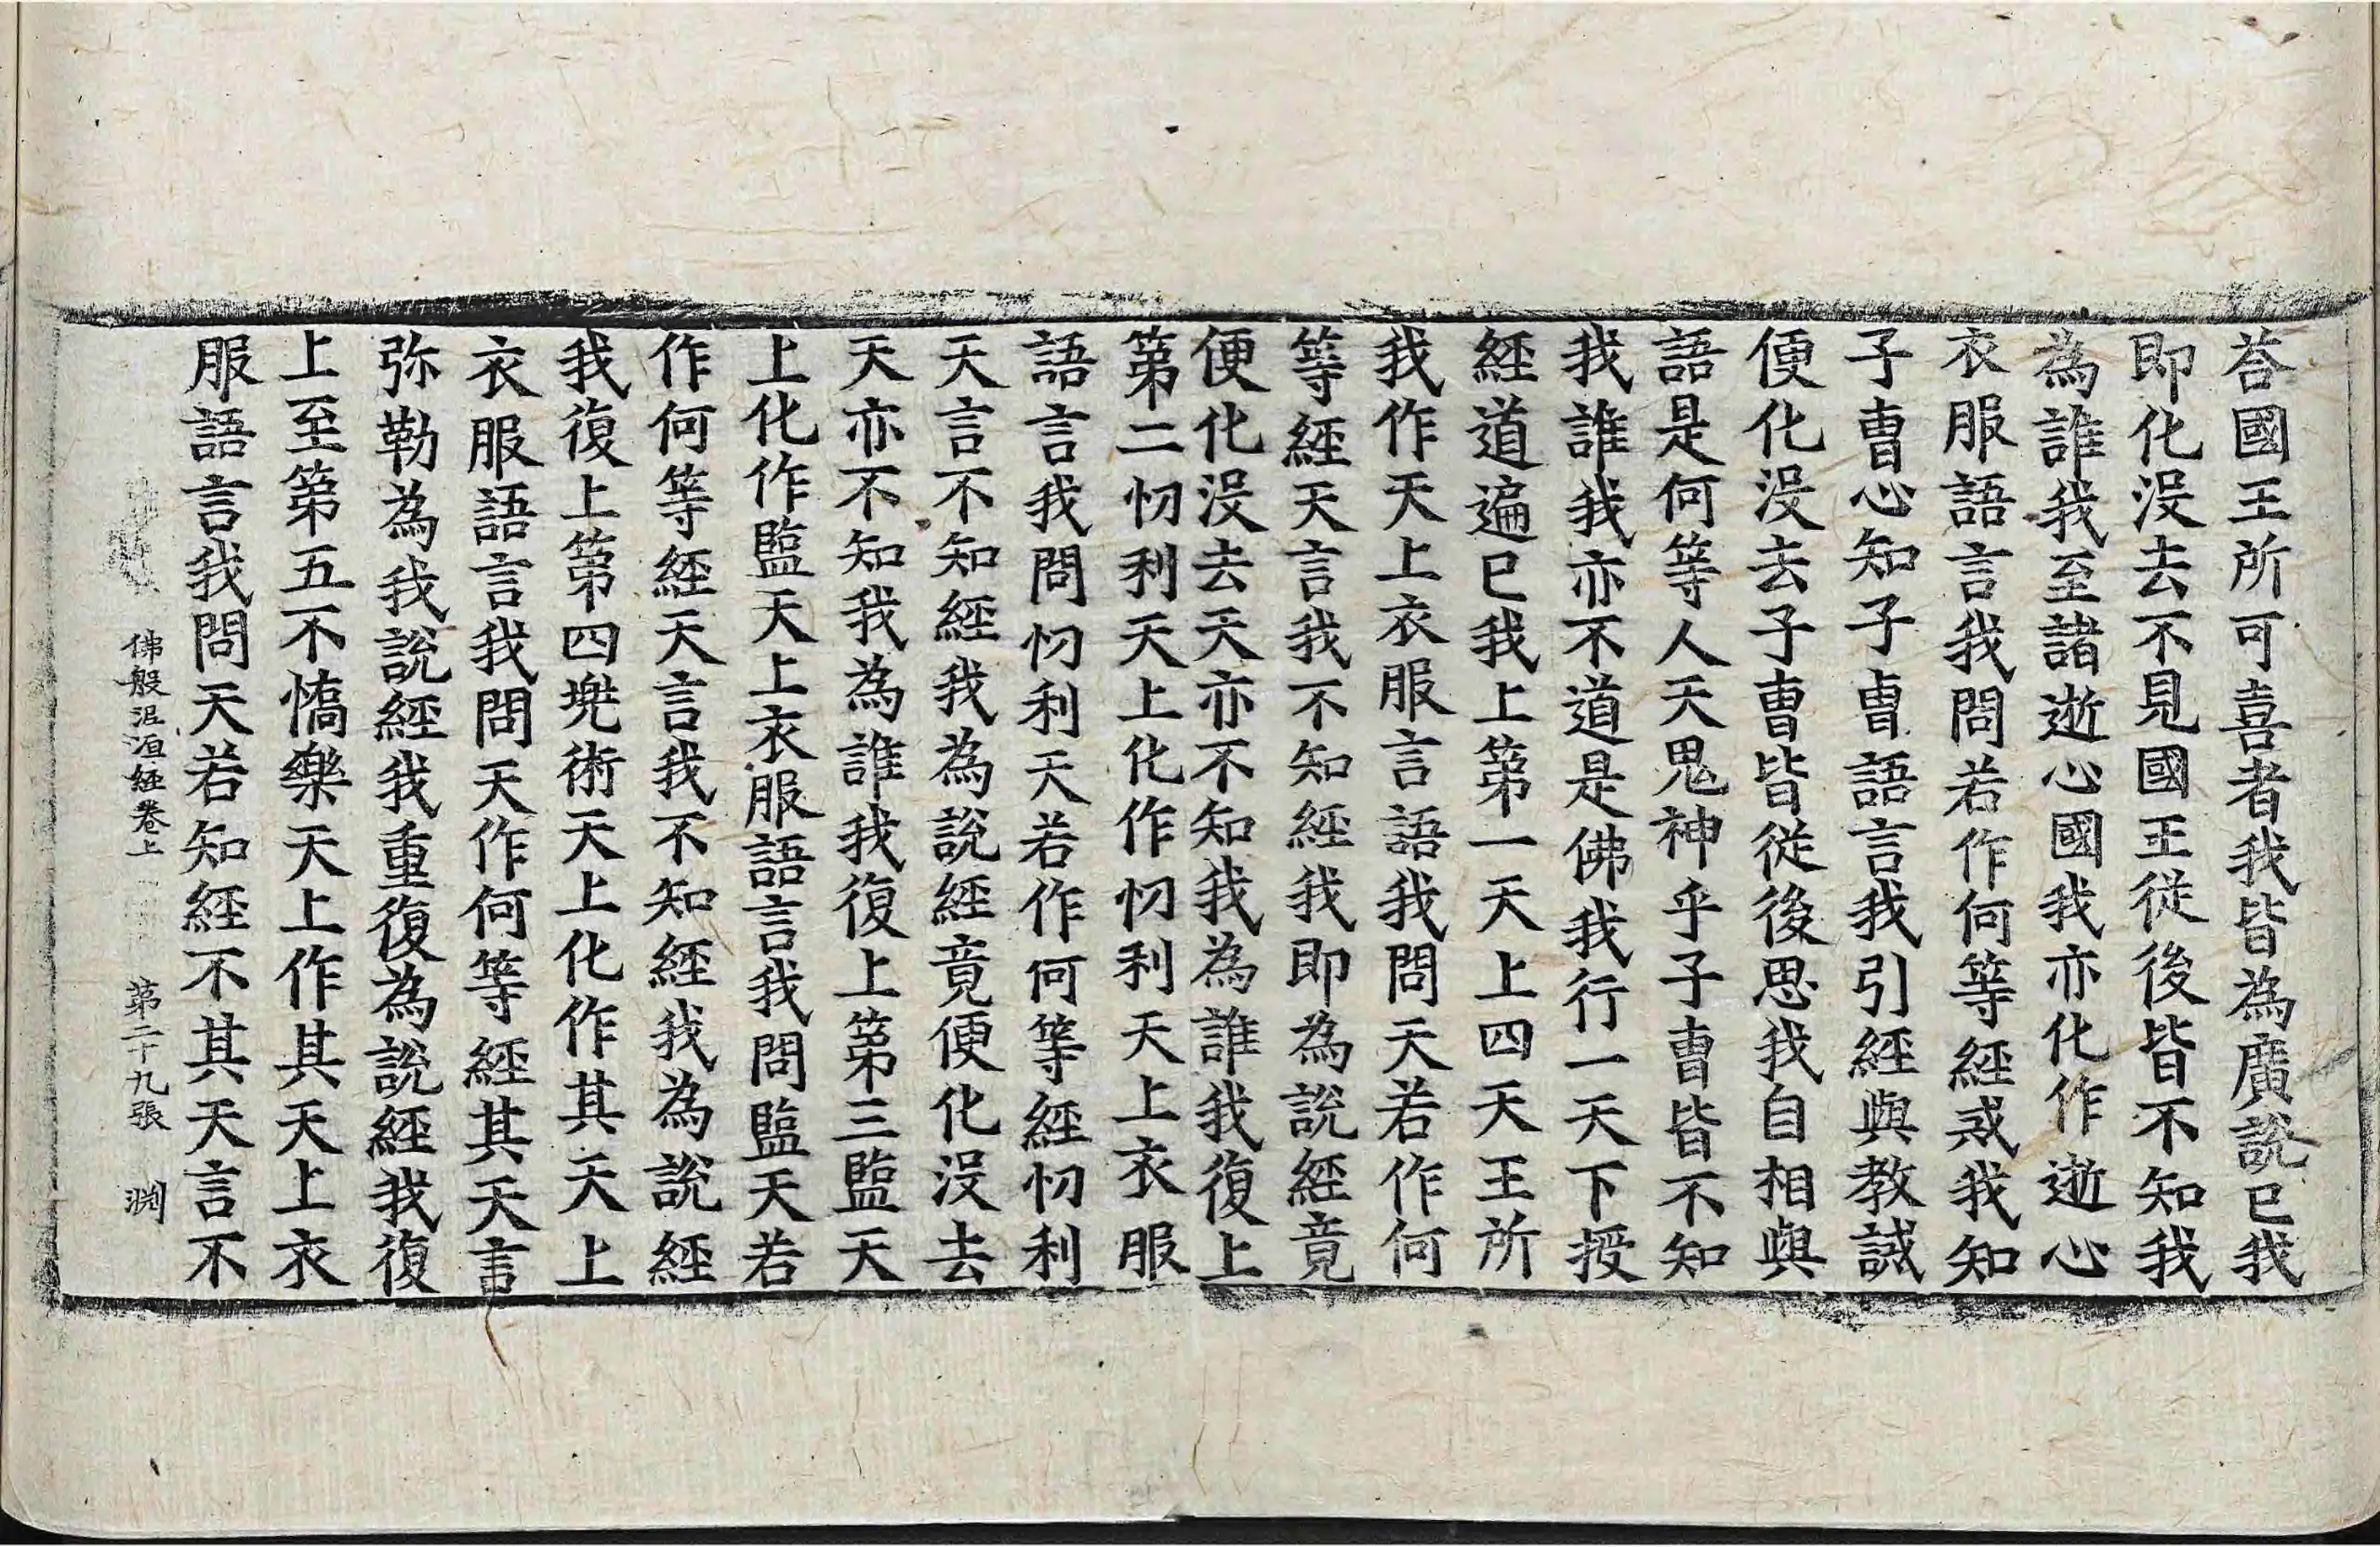 荅國王所可喜者我皆為廣說已我
即化没去不見國王従後皆不知我
為誰我至諸逝心國我亦化作逝心
衣服語言我問若作何等經戒我知
子曺心知子曺語言我引經與教誡
便化没去子曺皆従後思我自相與
語是何等人天鬼神乎子曺皆不知
我誰我亦不道是佛我行一天下授
經道遍已我上第一天上四天王所
我作天上衣服言語我問天若作何
等經天言我不知經我即為說經竟
便化没去天亦不知我為誰我復上
第二忉利天上化作忉利天上衣服
語言我問忉利天若作何等經忉利
天言不知經我為說經竟便化没去
天亦不知我為誰我復上第三監天
上化作監天上衣服語言我問監天若
作何等經天言我不知經我為說經
我復上第四兠術天上化作其天上
衣服語言我問天作何等經其天言
弥勒為我說經我重復為說經我復
上至第五不憍樂天上作其天上衣
服語言我問天若知經不其天言不
佛般泥洹經卷上 第二十九張 渊